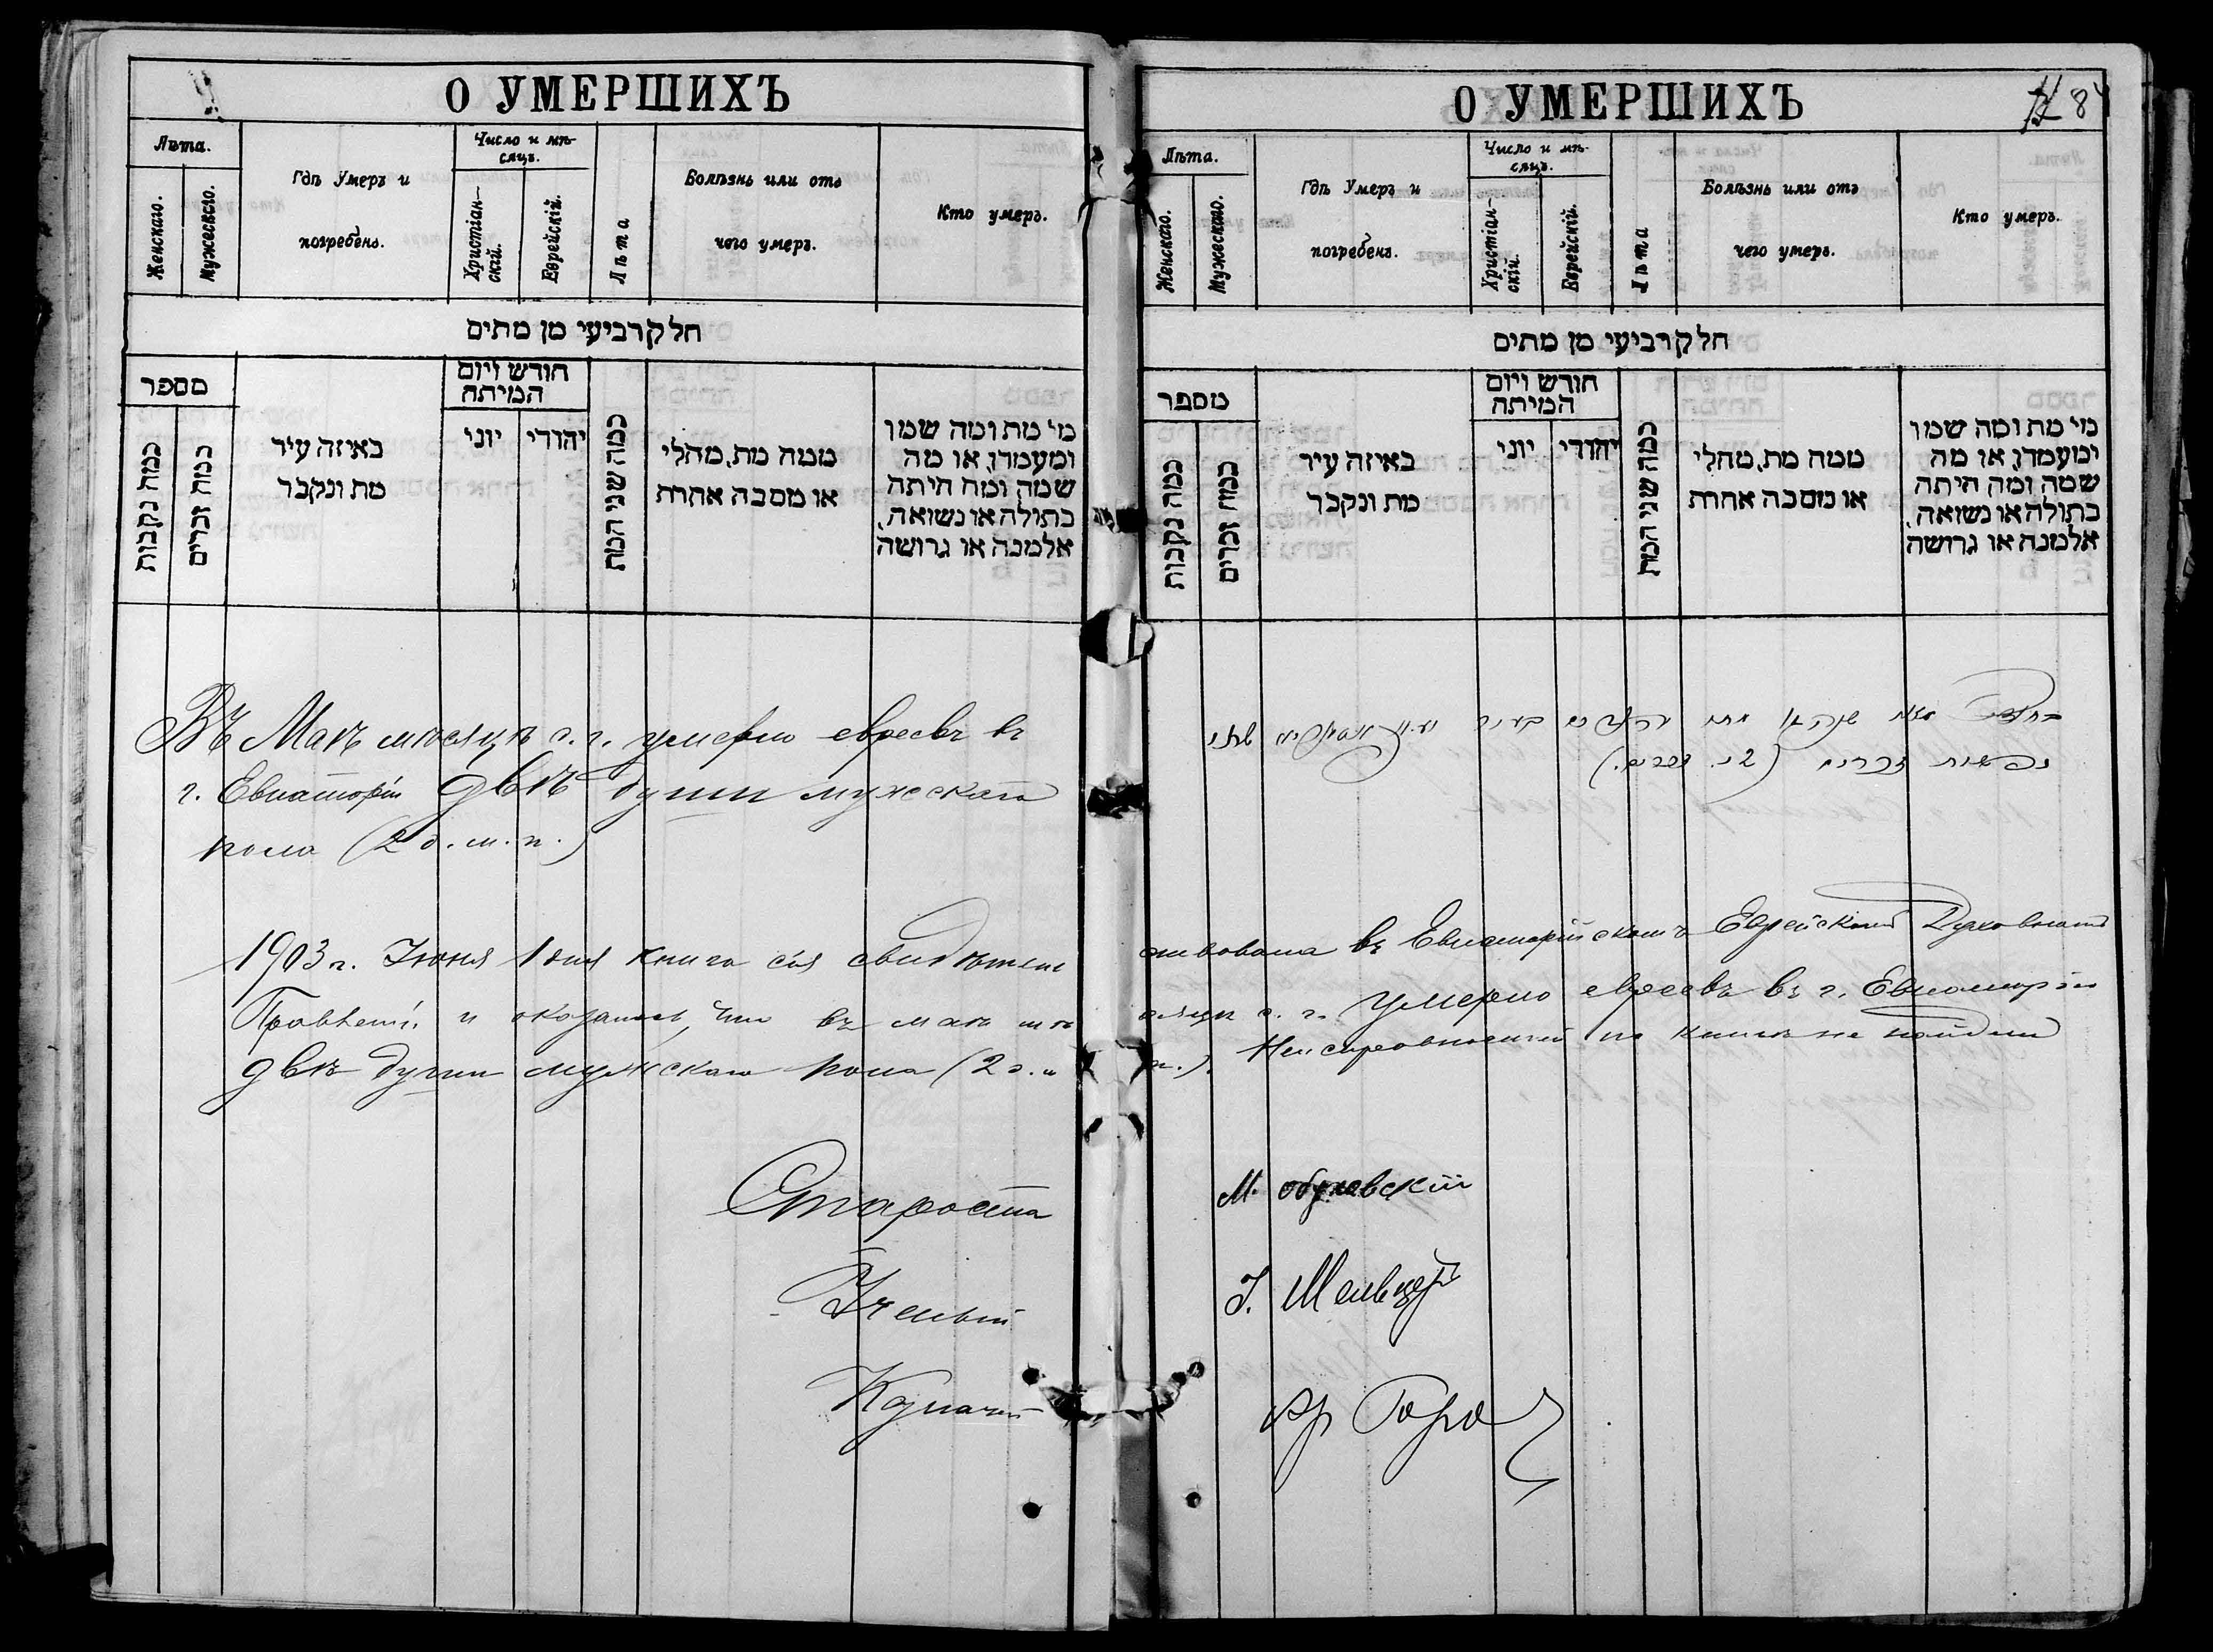 О УМЕРШИХЪ
Лѣта.
Женскаго.
Мужескаго.
Гдѣ Умеръ и
погребенъ.
Число и мѣ-
сяцъ.
Христіан-
скій.
Еврейскій.
Лѣта
Болѣзнь или отъ
чего умеръ.
Кто умеръ.
חלק רביעי מן מתים
מספר
כמה נקבות
כמה זכרים
באיזה עיר
מת ונקבר
חודש ויום
המיתה
יוני
יהודי
כמה שני המת
ממה מת, מחלי
או מסבה אחרת
מי מת ומה שמו
ומעמדו, או מה
שמה ומה היתה
בתולה או נשואה,
אלמנה או גרושה
Въ Маѣ мѣсяцѣ с. г. умерло евреевъ въ
г. Евпаторіи двѣ души мужскаго
пола (2 д. м. п.)
О УМЕРШИХЪ
84
Лѣта.
Женскаго.
Мужескаго.
Гдѣ Умеръ и
погребенъ.
Число и мѣ-
сяцъ.
Христіан-
скій.
Еврейскій.
Лѣта
Болѣзнь или отъ
чего умеръ.
Кто умеръ.
חלק רביעי מן מתים
מספר
כמה נקבות
כמה זכרים
באיזה עיר
מת ונקבר
חודש ויום
המיתה
יוני
יהודי
כמה שני המת
ממה מת, מחלי
או מסבה אחרת
מי מת ומה שמו
ומעמדו, או מה
שמה ומה היתה
בתולה או נשואה,
אלמנה או גרושה
נפשות זכרים (2 נ. זכרים.)
1903 г. Іюня 1 дня книга сія свидѣтельствована въ Евпаторійскомъ Еврейскомъ Духовномъ
Правленіи и оказалось, что въ маѣ мѣсяцѣ с. г. умерло евреевъ въ г. Евпаторіи
двѣ души мужскаго пола (2 д. м. п.). Неисправностей по книгѣ не найдено
Староста М.
Ученый І.
Казначей